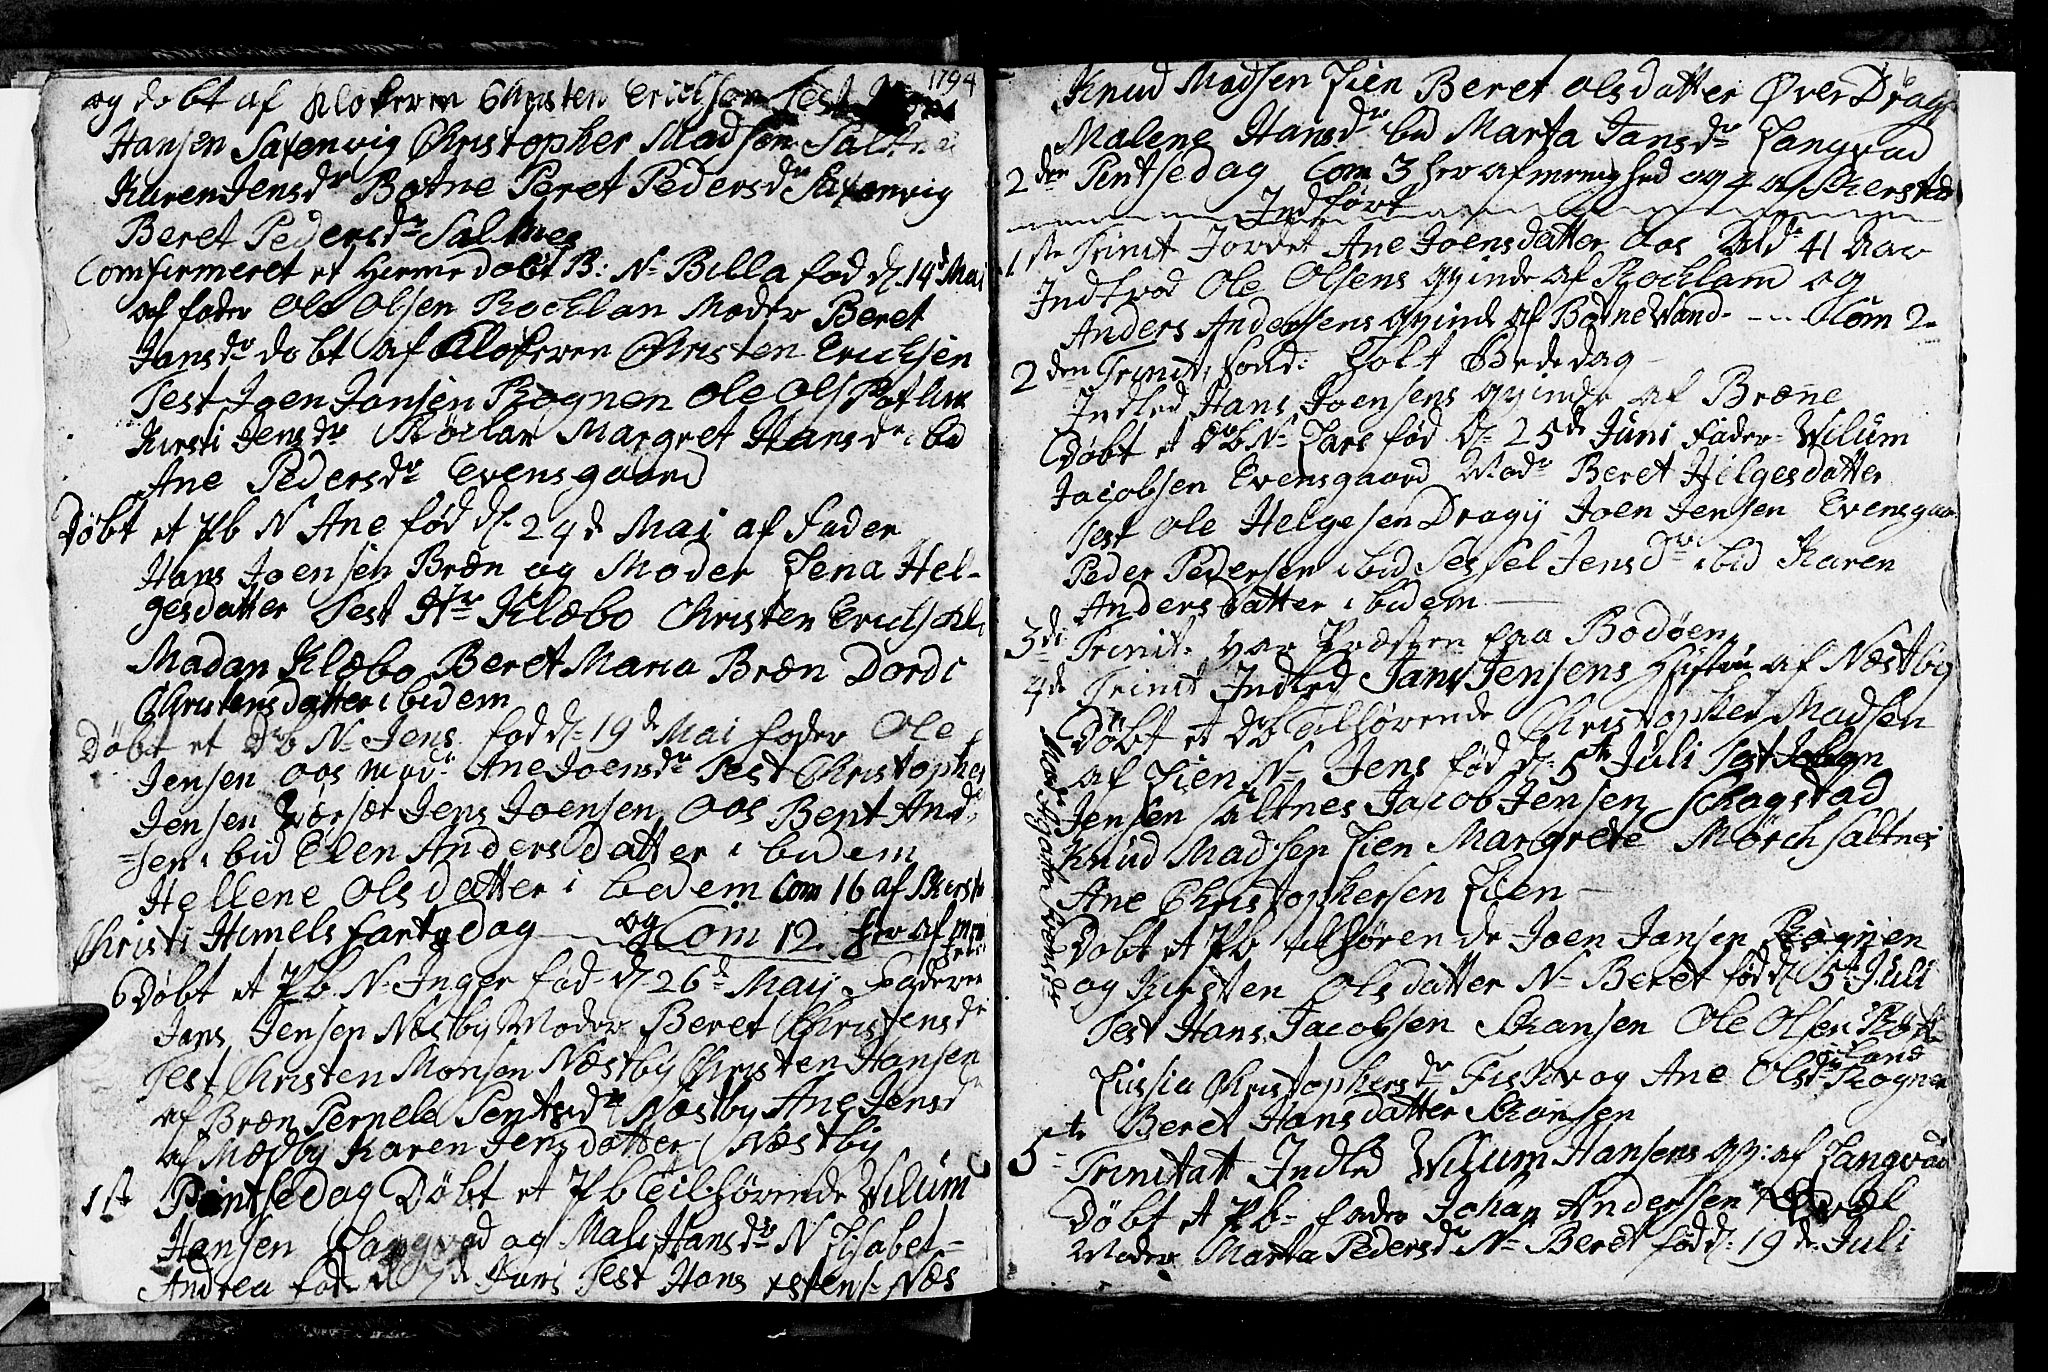 1794
og døbt af Klokeren Christen Erichsen Test
Hansen Saxenvig Christopher Madsen Saltnes
Karen Jensdr Botne Peret Pedersdr Saxenvig
Beret Pedersdr Saltnes
Comfirmeret et Hiemedøbt B: N= Billa fød d: 14d Mai
af fader Ole Olsen Rochlan Moder Beret
Jansdr døbt af Klokeren Christen Erichsen
Test Joen Jansen Rognen Ole Ols
Kirsti Jensdr Røclan Margret Hansdr ibd
Ane Pedersdr Evensgaard
Døbt et Pb N Ane fød d: 24d Mai af Fader
Hans Joensen Bræn og Moder Lena Hel-
gesdatter Test Hr Klæbo Christen Erichs
Madan Klæbo Beret Maria Bræn Dordi
Christensdatter ibidem
Døbt et Drb N= Jens fød d: 19d Mai fader Ole
Jensen Aas Mod: Ane Joensdr Test Christopher
Jensen Jens Joensen Aas Bent And-
=sen ibid Elen Andersdatter ibidem
Hellene Olsdatter ibidem Com 16 af Skierst
Christi Himelsfartsdag og Com 12 her af
Døbt et Pb N= Inger fød d: 26d Maij Faderen
Jans Jensen Næstby Moder Beret Christensdr
Test Christen Monsen Næstby Christen Hansen
af Bræn Pernele Pentsdr Næstby Ane Jensdr
af Mædby Karen Jensdatter Næstby
1st Pintsedag Døbt et Pb tilhørende Wilum
Hansen Langvad og Mali Hansdr N Lisabet-
Andrea fød d 7d Juni Test Hans Næs
Knud Madsen Lien Beret Olsdatter Øver Dragy
Malene Hansdr ibid Marta Jansdr Langvad
2den Pintsedag Com 3 her af menighed og 4 af Skierstad
Indført
1ste Trinit Jordet Ane Joensdatter Aas Ald: 41 Aar
Indtrod Ole Olsens qvinde af Rochlan og
Anders Andersens qvinde af Botnevand - Com 2
2den Trinit: sønd: holt Bededag
Indled Hans Joensens qvinde af Bræne
Døbt et Drb N= Lars fød d: 25de Juni Fader Wilum
Jacobsen Evensgaard Modr Beret Hilgesdatter
Test Ole Helgesen Dragy Joen Jensen Evensgaa
Peder Pedersen ibid Sessel Jensdr ibid Karen
Andersdatter ibidem
3de Trinit: var Præsten paa Bodøen
4de Trinit Indled Jans Jensens Hustru af Næstby
Døbt et Db tilhørende Christopher Madsen
af Lien N= Jens fød d: 5te Juli Test Johan
Jensen Saltnes Jacob Jensen Skagstad
Knud Madsen Lien Margrete Mørch Saltnes
Ane Christophersen Lien
Døbt et Pb tilhørende Joen Jansen Rognen
og Kirsten Olsdatter N= Beret fød d: 5te Juli
Test Hans Jacobsen Skansen Ole Olsen Røch
land
Lussia Christophersdr Fiskv og Ane Olsdr Rognen
Beret Hansdatter Skansen
5te Trinitatt Indled Wilum Hansens qv: af Langvad
Døbt et Pb= fader Johan Andersen
Moder Marta Pedersdr N= Beret fød d: 19de Juli